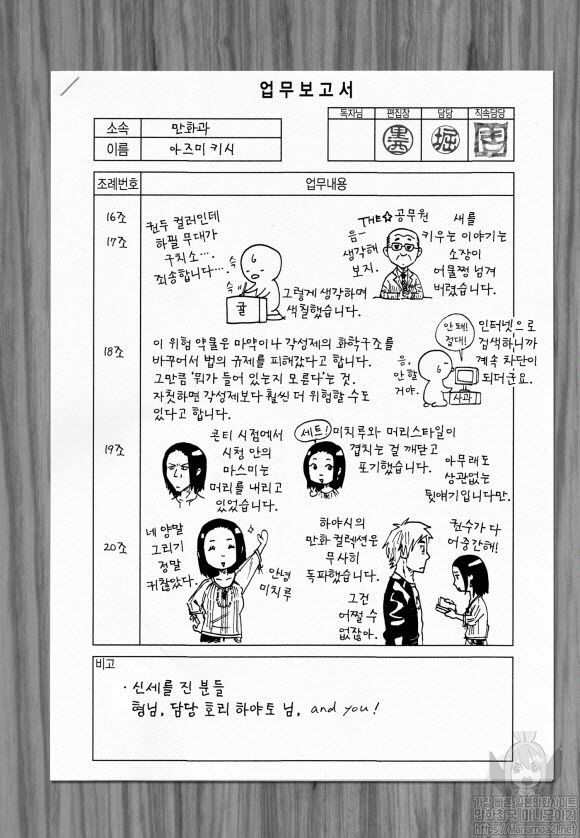 업무보고서
소속 만화과
이름 아즈미 키시
독자님 편집장 담당 직속담당
堀
조례번호 업무내용
16조
17조
권두 컬러인데
하필 무대가
구치소….
죄송합니다….
슥
슥
귤
그렇게 생각하며
색칠했습니다.
THE☆공무원
음ー
생각해
보지.
새를
키우는 이야기는
소장이
어물쩡 넘겨
버렸습니다.
18조
이 위험 약물은 마약이나 각성제의 화학구조를
바꾸어서 법의 규제를 피해갔다고 합니다.
그만큼 '뭐가 들어 있는지 모른다'는 것.
자칫하면 각성제보다 훨씬 더 위험할 수도
있다고 합니다.
안 돼!
절대!
응,
안 할
거야.
사과
인터넷으로
검색하니까
계속 차단이
되더군요.
19조
콘티 시점에서
시청 안의
마스미는
머리를 내리고
있었습니다.
세트!
미치루와 머리스타일이
겹치는 걸 깨닫고
포기했습니다.
아무래도
상관없는
뒷얘기입니다만.
20조
네 양말
그리기
정말
귀찮았다.
안녕
미치루
하야시의
만화 컬렉션은
무사히
독파했습니다.
그건
어쩔 수
없잖아.
권수가 다
어중간해!
비고
· 신세를 진 분들
형님, 담당 호리 하야토 님, and you!
가장 빠른 일본만화사이트
만화천국 마나모아
https://Manamoa21.net